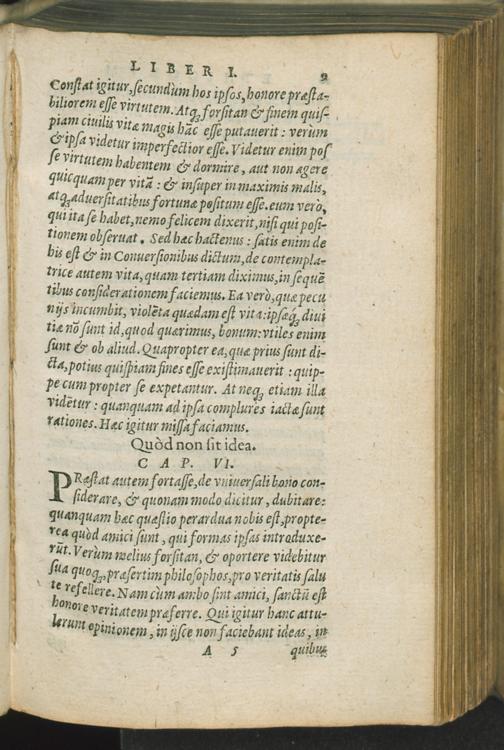 LIBER I. 9
Constat igitur, secundùm hos ipsos, honore præsta-
biliorem esse virtutem. Atq; forsitan & finem quis-
piam ciuilis vitæ magis hãc esse putauerit : verùm
& ipsa videtur imperfectior esse. Videtur enim pos
se virtutem habentem & dormire, aut non agere
quicquam per vitã : & insuper in maximis malis,
atq; aduersitatibus fortunæ positum esse. eum verò,
qui ita se habet, nemo felicem dixerit, nisi qui posi-
tionem obseruat. Sed hæc hactenus : satis enim de
his est & in Conuersionibus dictum, de contempla-
trice autem vita, quam tertiam diximus, in sequẽ
tibus considerationem faciemus. Ea verò, quæ pecu
nijs incumbit, violẽta quædam est vita: ipsæq; diui
tiæ nõ sunt id, quod quærimus, bonum: vtiles enim
sunt & ob aliud. Quapropter ea, quæ prius sunt di-
cta, potius quispiam fines esse existimauerit : quip-
pe cum propter se expetantur. At neq; etiam illa
vidẽtur : quanquam ad ipsa complures iactæ sunt
rationes. Hæc igitur missa faciamus.
Quòd non sit idea.
CAP. VI.
PRæstat autem fortasse, de vniuersali bono con-
siderare, & quonam modo dicitur, dubitare:
quanquam hæc quæstio perardua nobis est, propte-
rea quòd amici sunt, qui formas ipsas introduxe-
rũt. Verùm melius forsitan, & oportere videbitur
sua quoq; præsertim philosophos, pro veritatis salu
te refellere. Nam cùm ambo sint amici, sanctũ est
honore veritatem præferre. Qui igitur hanc attu-
lerunt opinionem, in ijsce non faciebant ideas, in
A 5 quibus